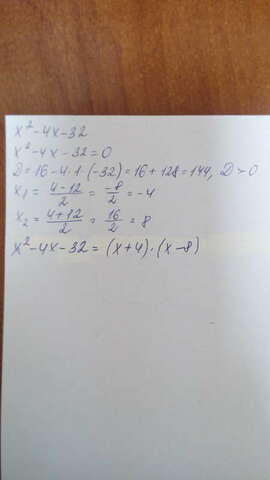 x²-4x-32
x²-4x-32=0
D=16-4·1·(-32)=16+128=144, D>0
x₁ = (4-12)/2 = -8/2 = -4
x₂ = (4+12)/2 = 16/2 = 8
x²-4x-32=(x+4)·(x-8)